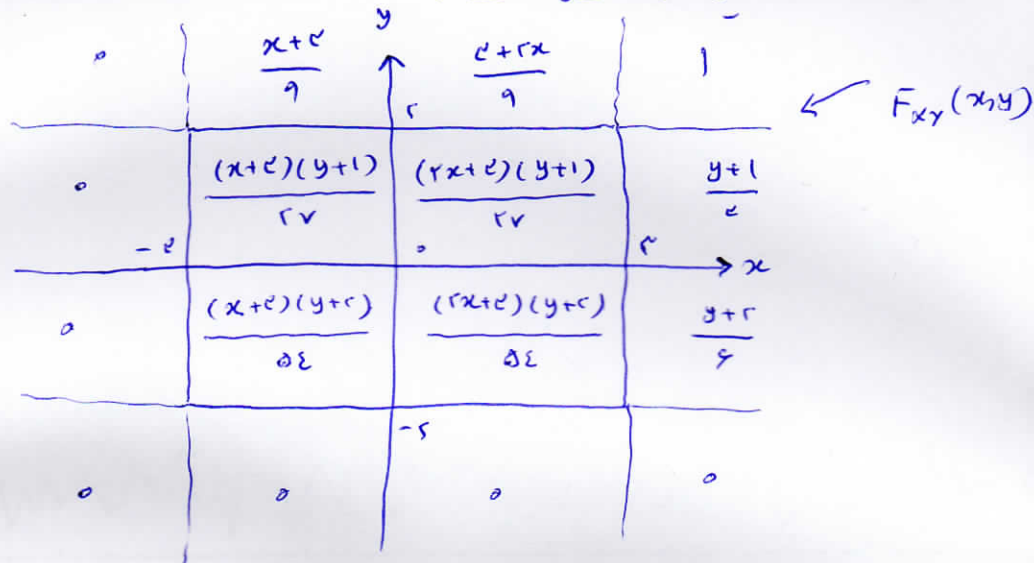 y
۰ (x+۳)/۹ (۳+۲x)/۹ ۱
۲ F_{XY}(x,y)
۰ (x+۳)(y+۱)/۲۷ (۲x+۳)(y+۱)/۲۷ (y+۱)/۳
-۳ ۰ ۳ x
۰ (x+۳)(y+۲)/۵۴ (۲x+۳)(y+۲)/۵۴ (y+۲)/۶
-۲
۰ ۰ ۰ ۰